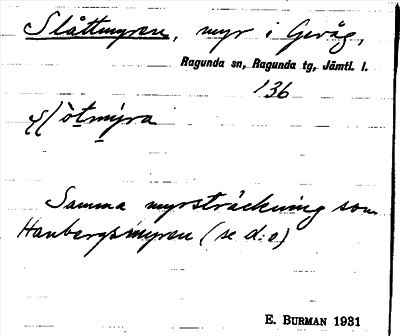 Slåttmyren, myr i Gevåg,
Ragunda sn, Ragunda tg, Jämtl. l.
136
Samma myrsträckning som
Hanbergsmyren (se d:o)
E. BURMAN 1931